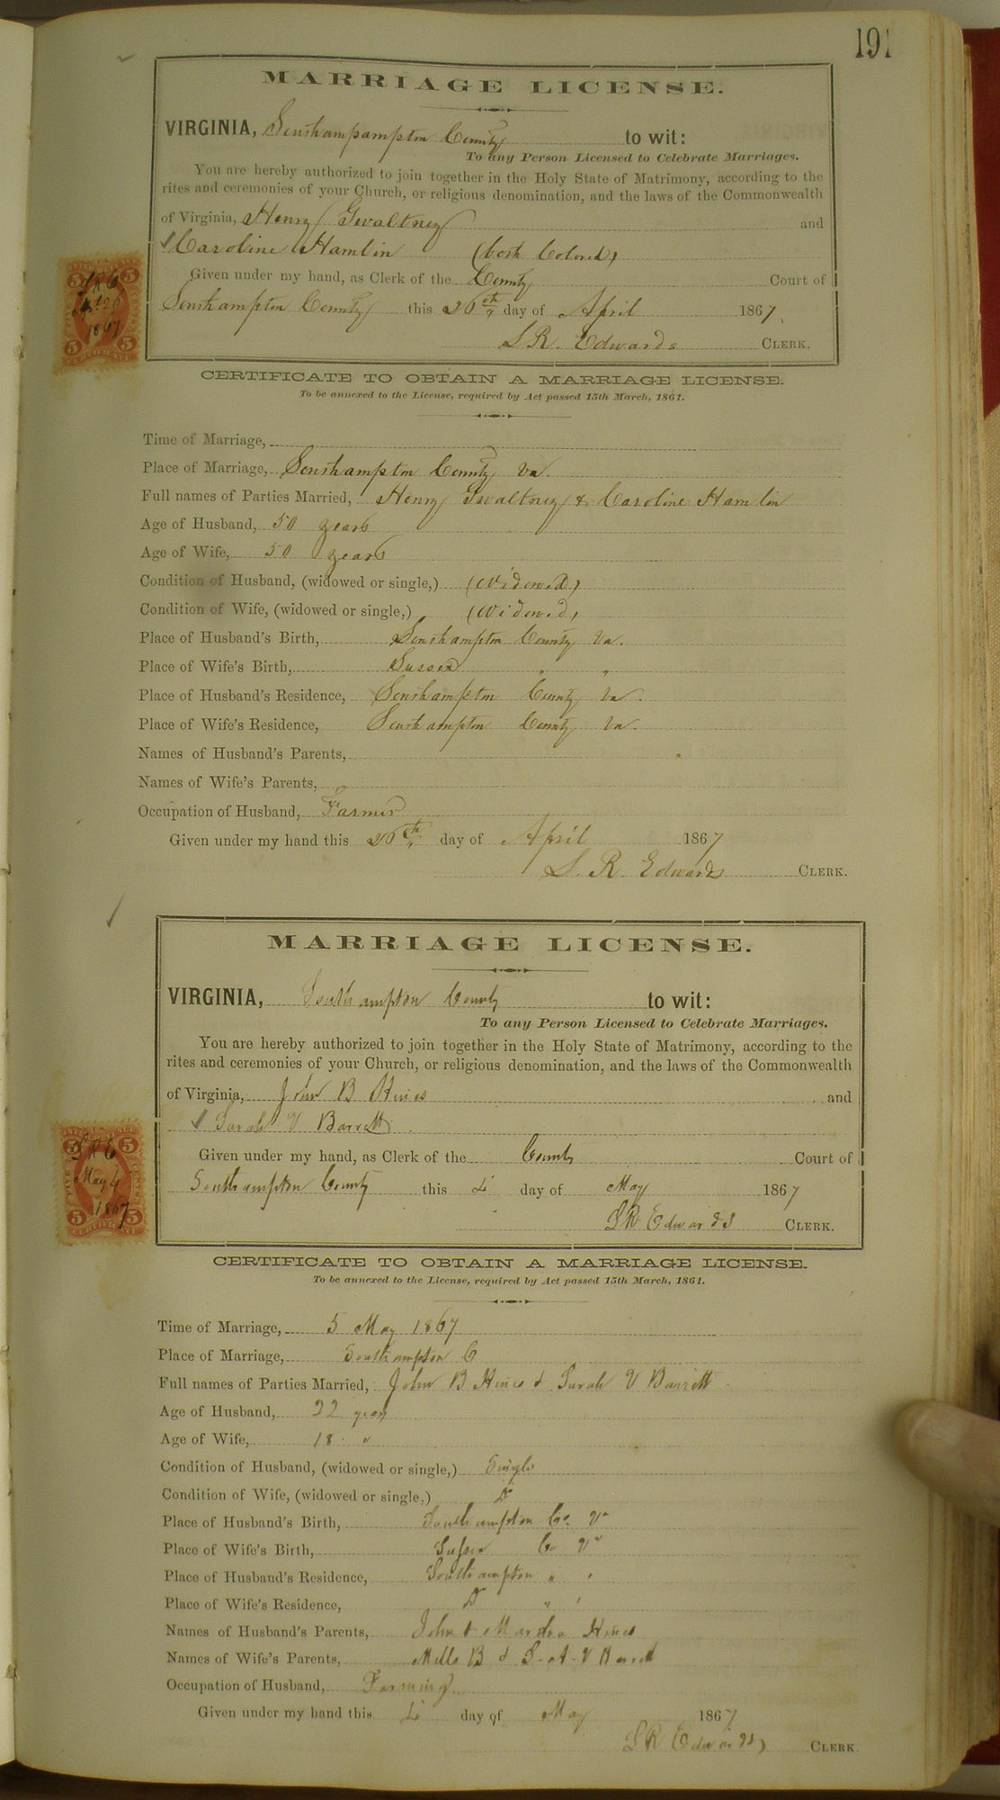 191
MARRIAGE LICENSE.
VIRGINIA, Southampton County to wit:
To any Person Licensed to Celebrate Marriages.
You are hereby authorized to join together in the Holy State of Matrimony, according to the
rites and ceremonies of your Church, or religious denomination, and the laws of the Commonwealth
of Virginia, Henry Gwaltney and
Caroline Hamlin (both Colored)
Given under my hand, as Clerk of the County Court of
Southampton County this 26th day of April 1867.
L R. Edwards CLERK.
5 5
LRE
26
1867
5 5
CERTIFICATE
CERTIFICATE TO OBTAIN A MARRIAGE LICENSE.
To be annexed to the License, required by Act passed 15th March, 1861.
Time of Marriage,
Place of Marriage, Southampton County Va.
Full names of Parties Married, Henry Gwaltney & Caroline Hamlin
Age of Husband, 50 years
Age of Wife, 50 years
Condition of Husband, (widowed or single,) (Widowed)
Condition of Wife, (widowed or single,) (Widowed)
Place of Husband's Birth, Southampton County Va.
Place of Wife's Birth, Sussex " "
Place of Husband's Residence, Southampton County Va.
Place of Wife's Residence, Southampton County Va.
Names of Husband's Parents,
Names of Wife's Parents,
Occupation of Husband, Farmer
Given under my hand this 26th day of April 1867
L. R. Edwards CLERK.
MARRIAGE LICENSE.
VIRGINIA, Southampton County to wit:
To any Person Licensed to Celebrate Marriages.
You are hereby authorized to join together in the Holy State of Matrimony, according to the
rites and ceremonies of your Church, or religious denomination, and the laws of the Commonwealth
of Virginia, John B Hines and
Sarah V Barrett
Given under my hand, as Clerk of the County Court of
Southampton County this 4 day of May 1867
LR Edwards CLERK.
5 5
LRE
May 4
1867
5 5
CERTIFICATE
CERTIFICATE TO OBTAIN A MARRIAGE LICENSE.
To be annexed to the License, required by Act passed 15th March, 1861.
Time of Marriage, 5 May 1867
Place of Marriage, Southampton C
Full names of Parties Married, John B Hines & Sarah V Barrett
Age of Husband, 22 years
Age of Wife, 18 "
Condition of Husband, (widowed or single,) Single
Condition of Wife, (widowed or single,) Do
Place of Husband's Birth, Southampton Co. Va
Place of Wife's Birth, Sussex Co Va
Place of Husband's Residence, Southampton " "
Place of Wife's Residence, Do " "
Names of Husband's Parents, John & Hines
Names of Wife's Parents, Mills B & S. A. V Barrett
Occupation of Husband, Farming
Given under my hand this 4 day of May 1867
LR Edwards CLERK